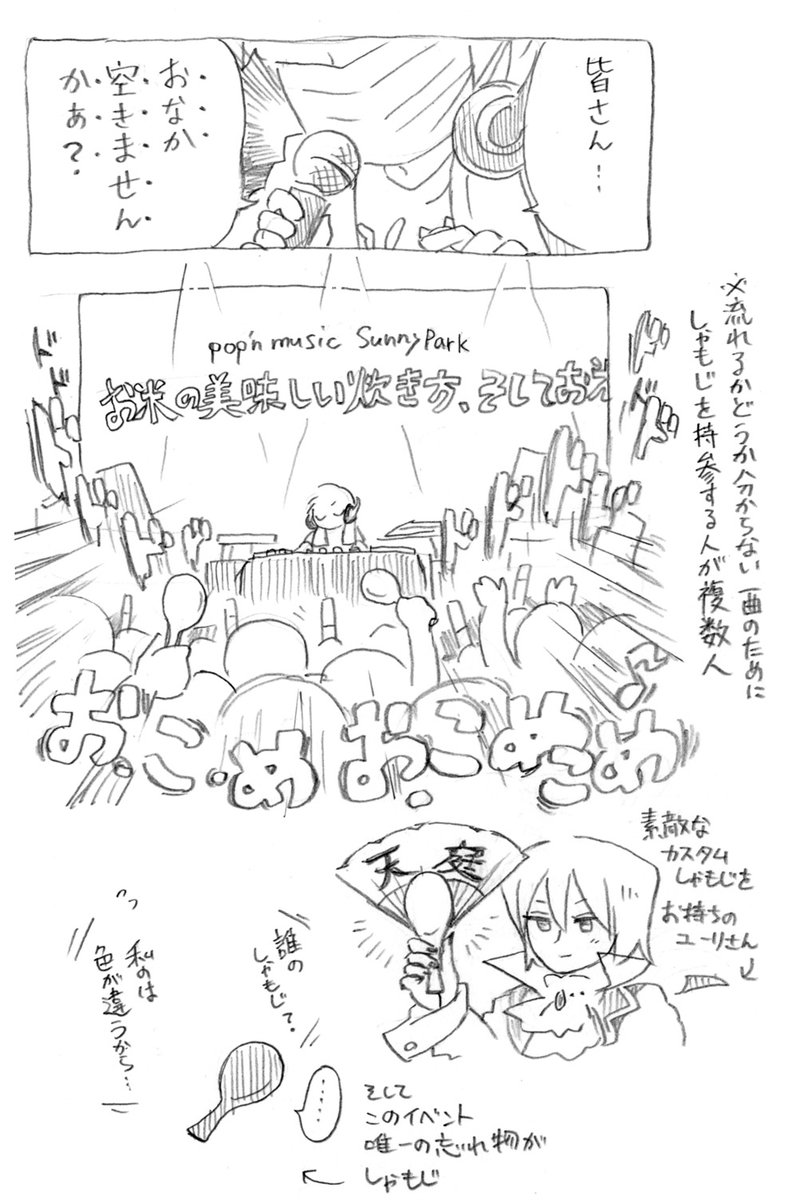 皆さん…
おなか
空きません
かぁ?
pop'n music Sunny Park
お米の美味しい炊き方、そしてお
※流れるかどうか分からない一曲のために
しゃもじを持参する人が複数人
ドドドド
ドドドド
おこめおこめこめ
素敵な
カスタム
しゃもじを
お持ちの
ユーリさん
天庭
誰の
しゃもじて。
私のは
色が違うから…
……
そして
このイベント
唯一の忘れ物が
しゃもじ